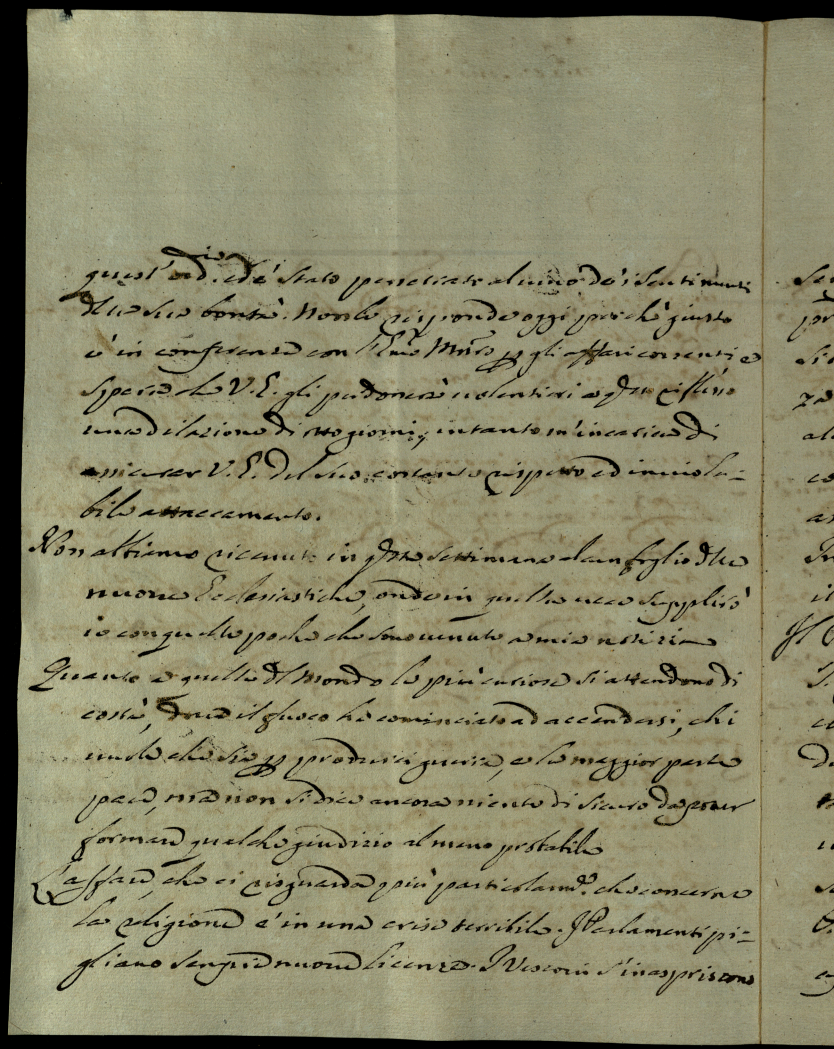 quest' ord.rio ed è stato penetrato al vivo de' sentimenti
della sua bontà. Non le risponde oggi perché giusto
è in conferenza con l'Emo Mro p gli affari correnti e
spera che V. E. gli perdonerà volentieri a qsto riflesso
una dilazione di otto giorni, intanto m'incarica di
assicurar V. E. del suo costante rispetto ed inviola=
bile attaccamento.
Non abbiamo ricevuto in qsta settimana alcun foglio delle
nuove Ecclesiastiche, onde in quella vece supplirò
io con quelle poche che sono venute a mia notizia
Quanto a quelle del Mondo le più curiose si attendono di
costà, dove il fuoco ha cominciato ad accendersi, chi
vuole che sia p produrci guerra, e la maggior parte
pace, ma non si dice ancora niente di sicuro da poter
formare qualche giudizio almeno probabile
L'affare, che ci risguarda più particolarme. che concerne
la religione è in una crise terribile. I Parlamenti pi=
gliano sempre nuove licenze. I Vescovi s'inaspriscono